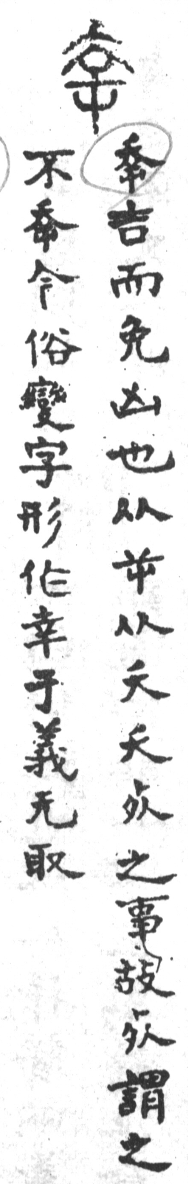 㚔
㚔吉而免凶也从屰从夭夭𣦸之事故𣦸謂之
不㚔今俗變字形作幸于義无取